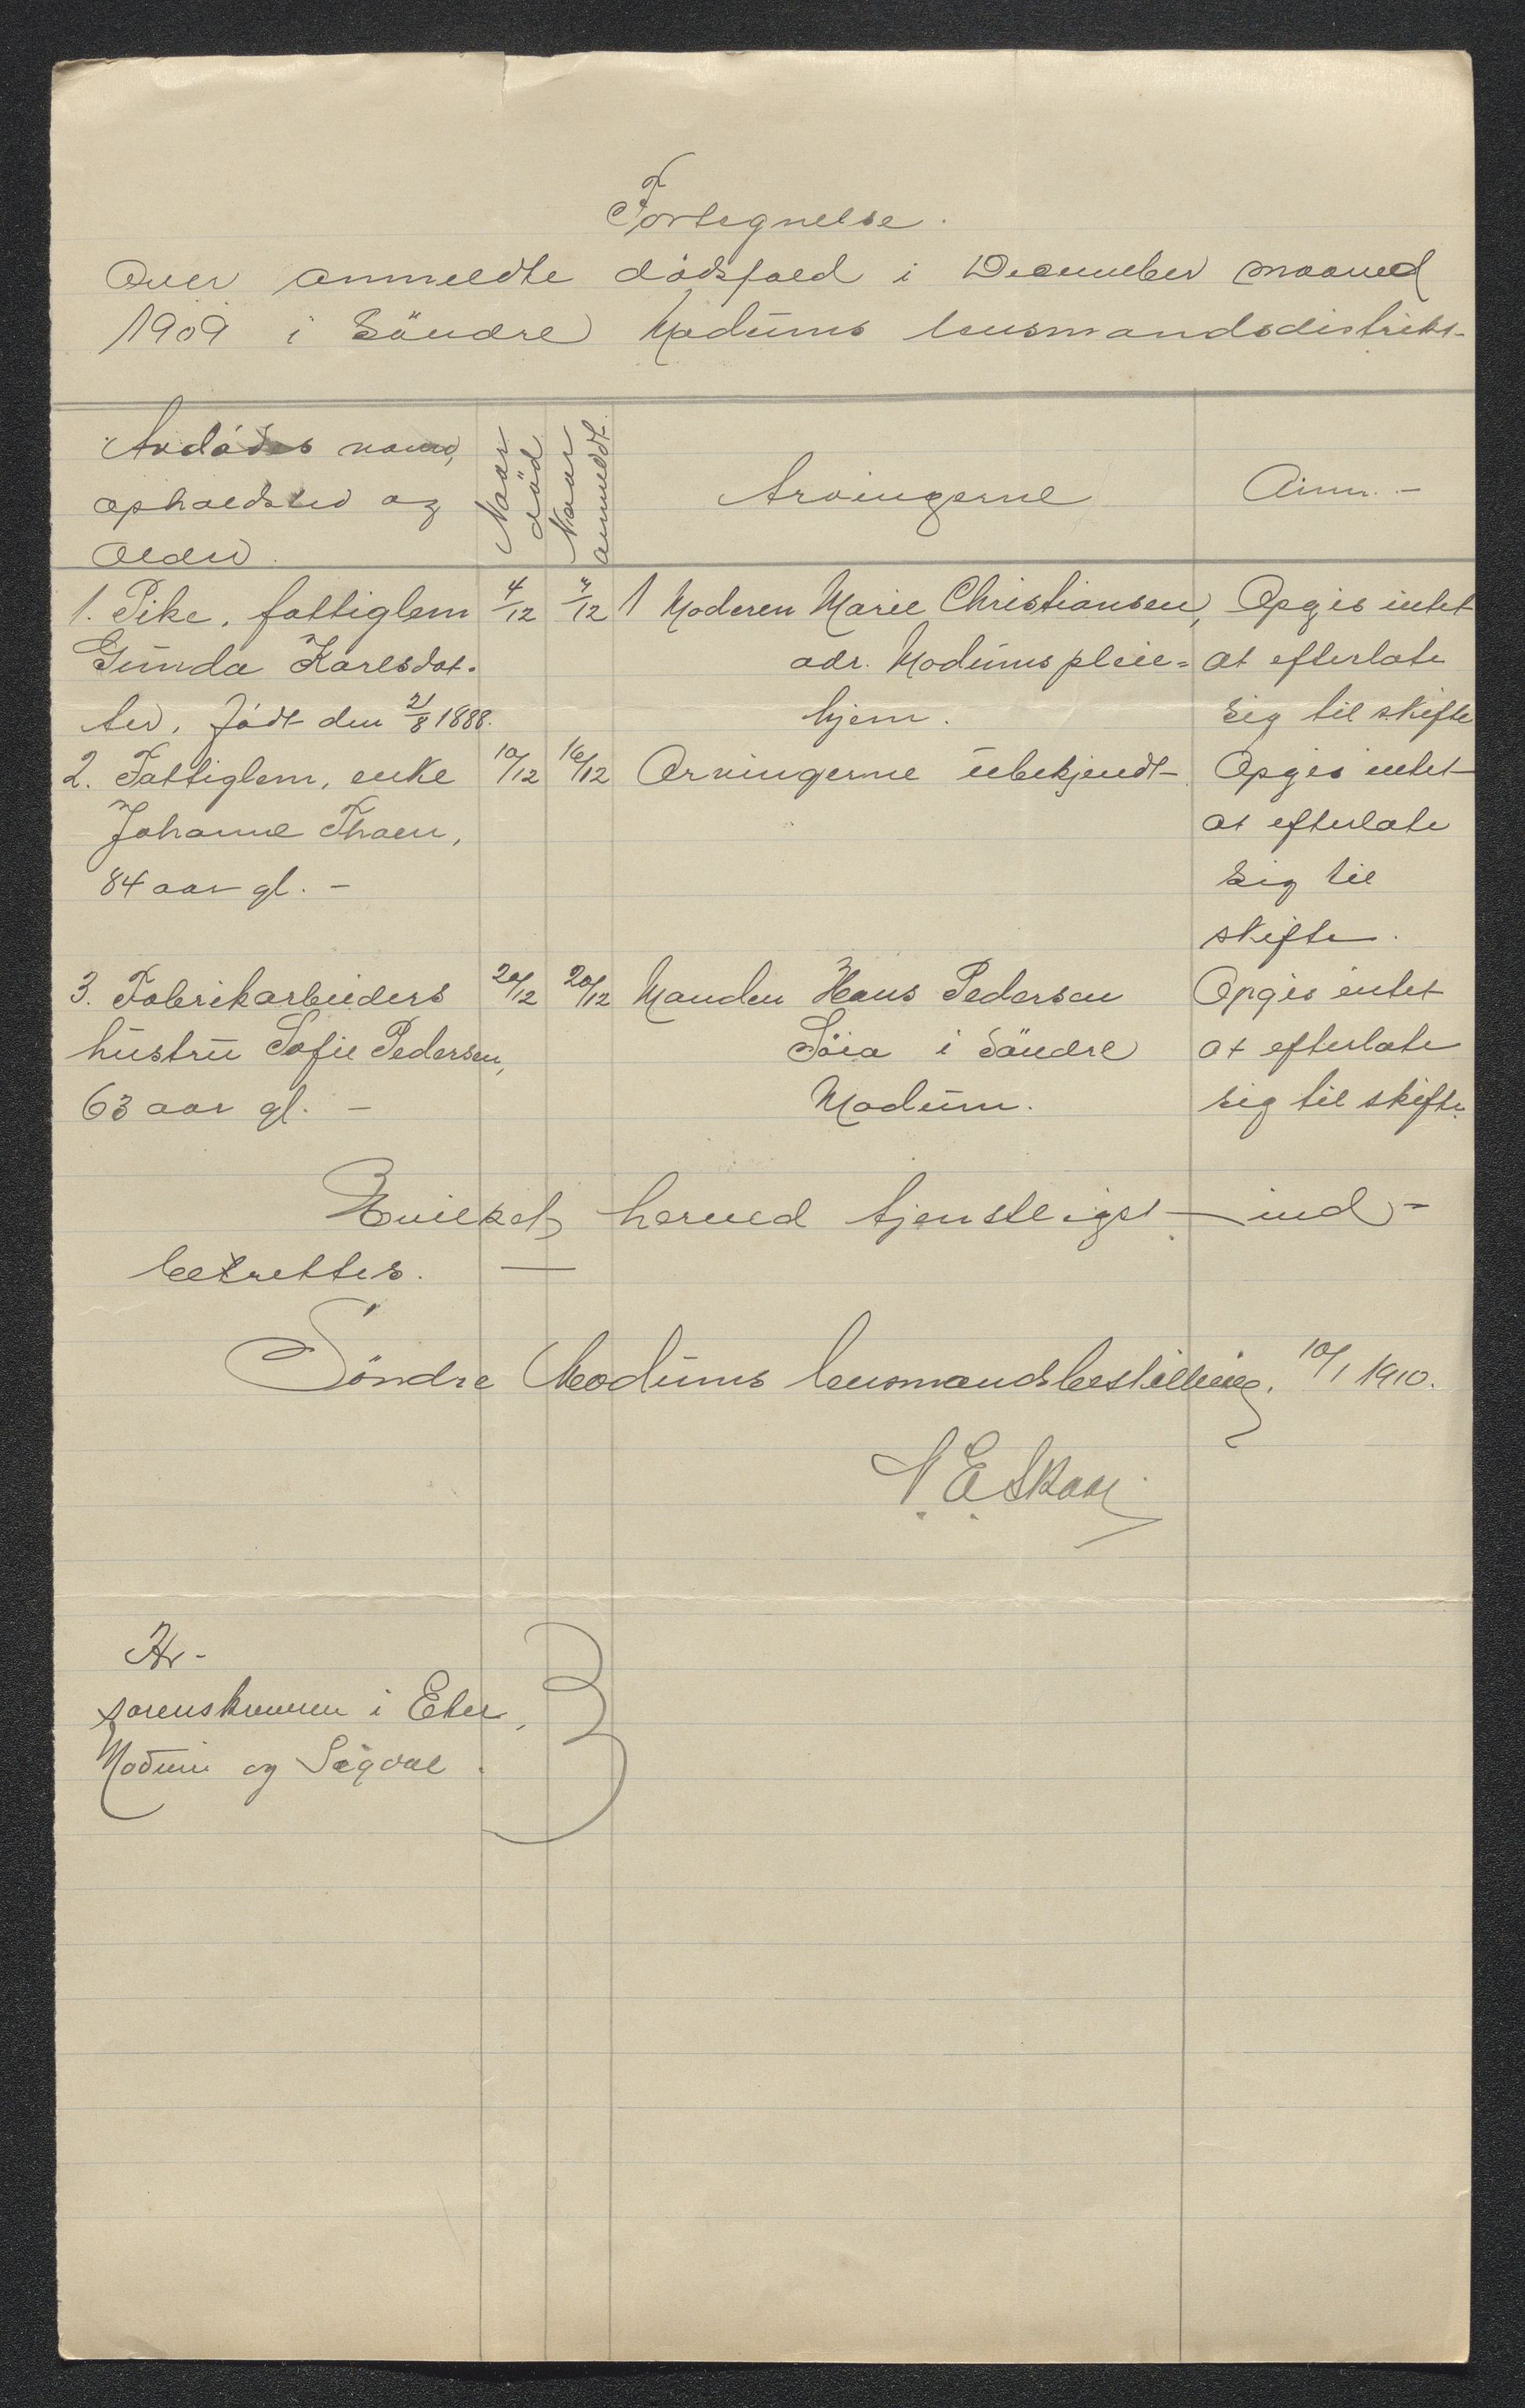 Fortegnelse.
over anmeldte dödsfald i December maaned
1909 i Söndre Modums lensmandsdistrikt.
Avdödes navn,
opholdsted og
alder.
Naar
död
Naar
anmeldt.
Arvingerne
Anm. -
1. Pike, fattiglem 4/12 4/12 1 Moderen Marie Christiansen, Opgis intet
Gunda Karlsdat- adr. Modums pleie= at efterlate
ter, född den 21/8 1888. hjem. sig til skifte
2. Fattiglem, enke 10/12 16/12 Arvingerne ubekjendt Opgis intet
Johanne Thoen, at efterlate
84 aar gl. - sig til
skifte.
3. Fabrikarbeiders 20/12 20/12 Manden Hans Pedersen Opgis intet
hustru Sofie Pedersen, i Söndre at efterlate
63 aar gl. - Modum. sig til skifte.
Hvilket herved tjenstligst ind-
berettes. —
Söndre Modums lensmandsbestilling, 10/1 1910.
N. E. Skaar
Hr.
sorenskriveren i Eker,
Modum og Sigdal.